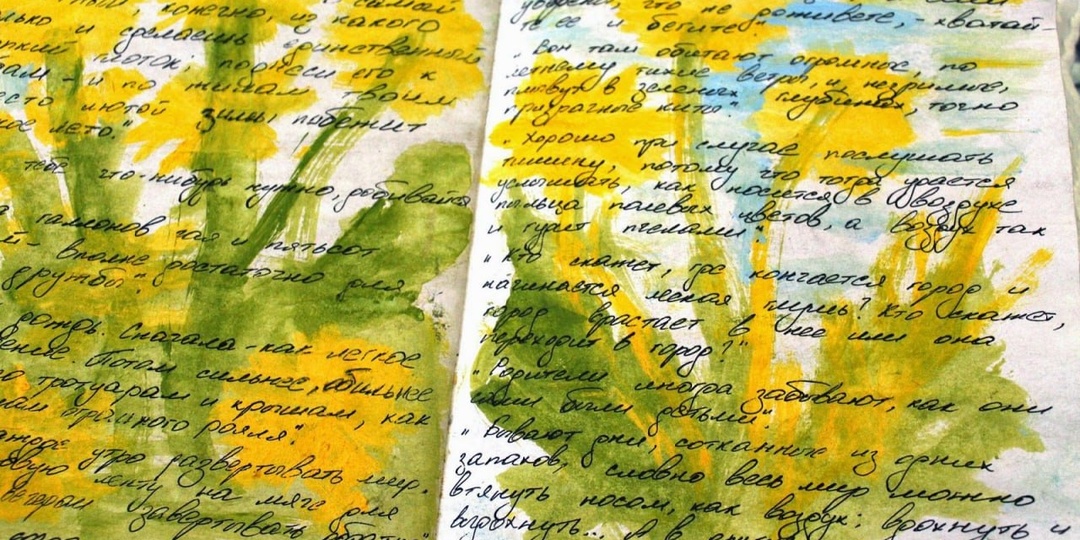 самой
конечно, из какого
и сделаешь единственный
глоток, поднеси его к
и по жилам твоим
лютой зимы побежит
лето."
тебе что-нибудь нужно, добивайся
галлонов чая и пятьсот
вполне достаточно для
дружбы."
дождь. Сначала - как легкое
Потом сильнее, обильнее
тротуарам и крышам, как
огромного рояля"
утро развертывать мир,
ленту на для
вечером завертывать
что не доживете, - хватай-
те ее и бегите!"
"Вон там обитают огромные, по
летнему тихие ветра, и незримые,
плывут в зеленых глубинах, точно
призрачные киты".
"Хорошо при случае послушать
тишину, потому что тогда удается
услышать, как носится в воздухе
пыльца полевых цветов, а воздух так
и гудит пчелами".
"Кто скажет, где кончается город и
начинается лесная глушь? Кто скажет,
город врастает в нее или она
переходит в город?"
"Родители иногда забывают, как они
сами были детьми".
"Бывают дни, сотканные из одних
запахов, словно весь мир можно
втянуть носом, как воздух: вдохнуть и
выдохнуть...